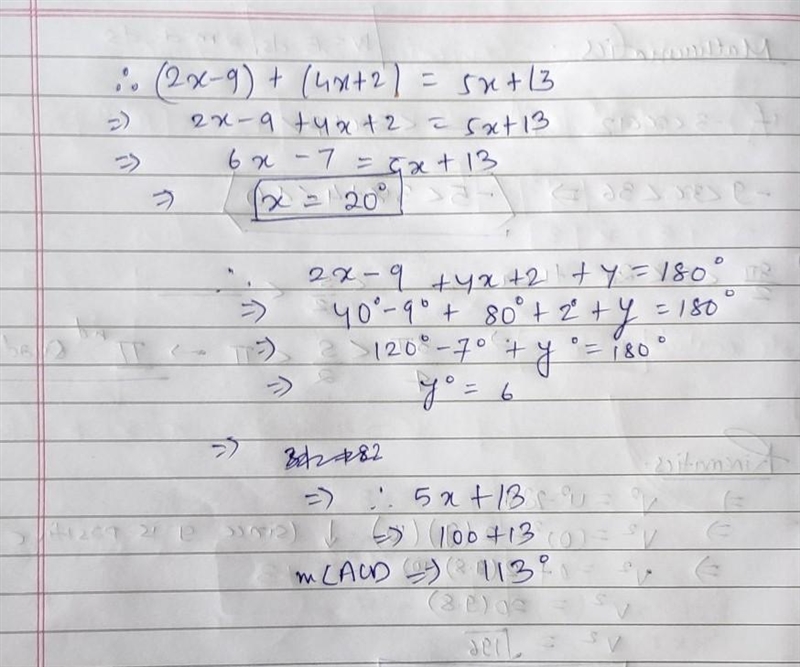 ∴ (2x-9) + (4x+2) = 5x+13
⇒ 2x-9 +4x+2 = 5x+13
⇒ 6x -7 = 5x+13
⇒ x = 20°
∴ 2x-9 +4x+2 +y = 180°
⇒ 40°-9°+ 80°+2°+y = 180°
⇒ 120°-7°+y°=180°
⇒ y° = 6
⇒
⇒ ∴ 5x+13
⇒ 100+13
m∠ACD ⇒ 113°